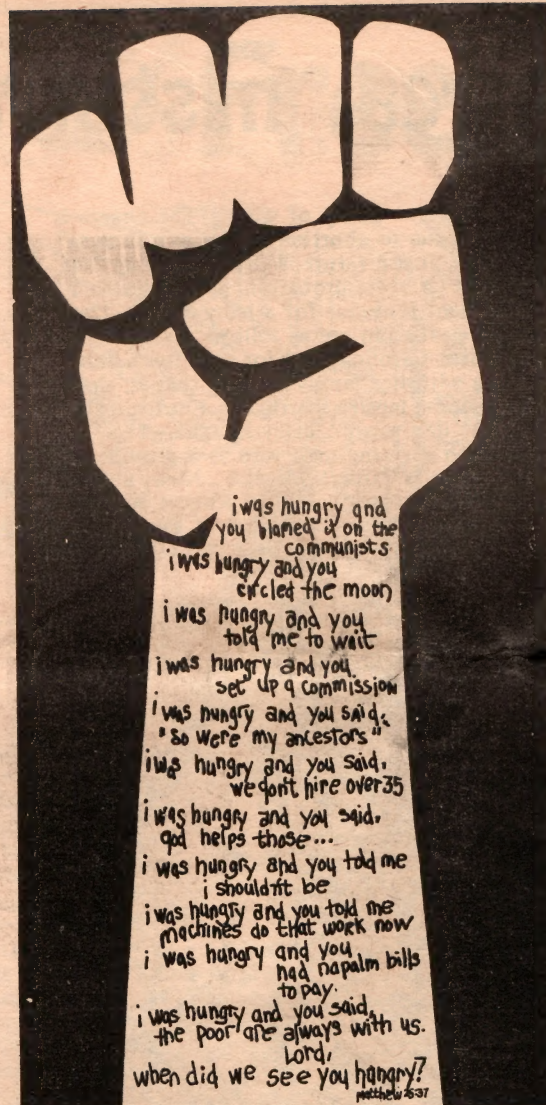 i was hungry and
you blamed it on the
communists
i was hungry and you
circled the moon
i was hungry and you
told me to wait
i was hungry and you
set up a commission
i was hungry and you said,
"so were my ancestors"
i was hungry and you said,
we don't hire over 35
i was hungry and you said,
god helps those...
i was hungry and you told me
i shouldn't be
i was hungry and you told me
machines do that work now
i was hungry and you
had napalm bills
to pay.
i was hungry and you said,
the poor are always with us.
Lord,
when did we see you hungry?
matthew 25:37